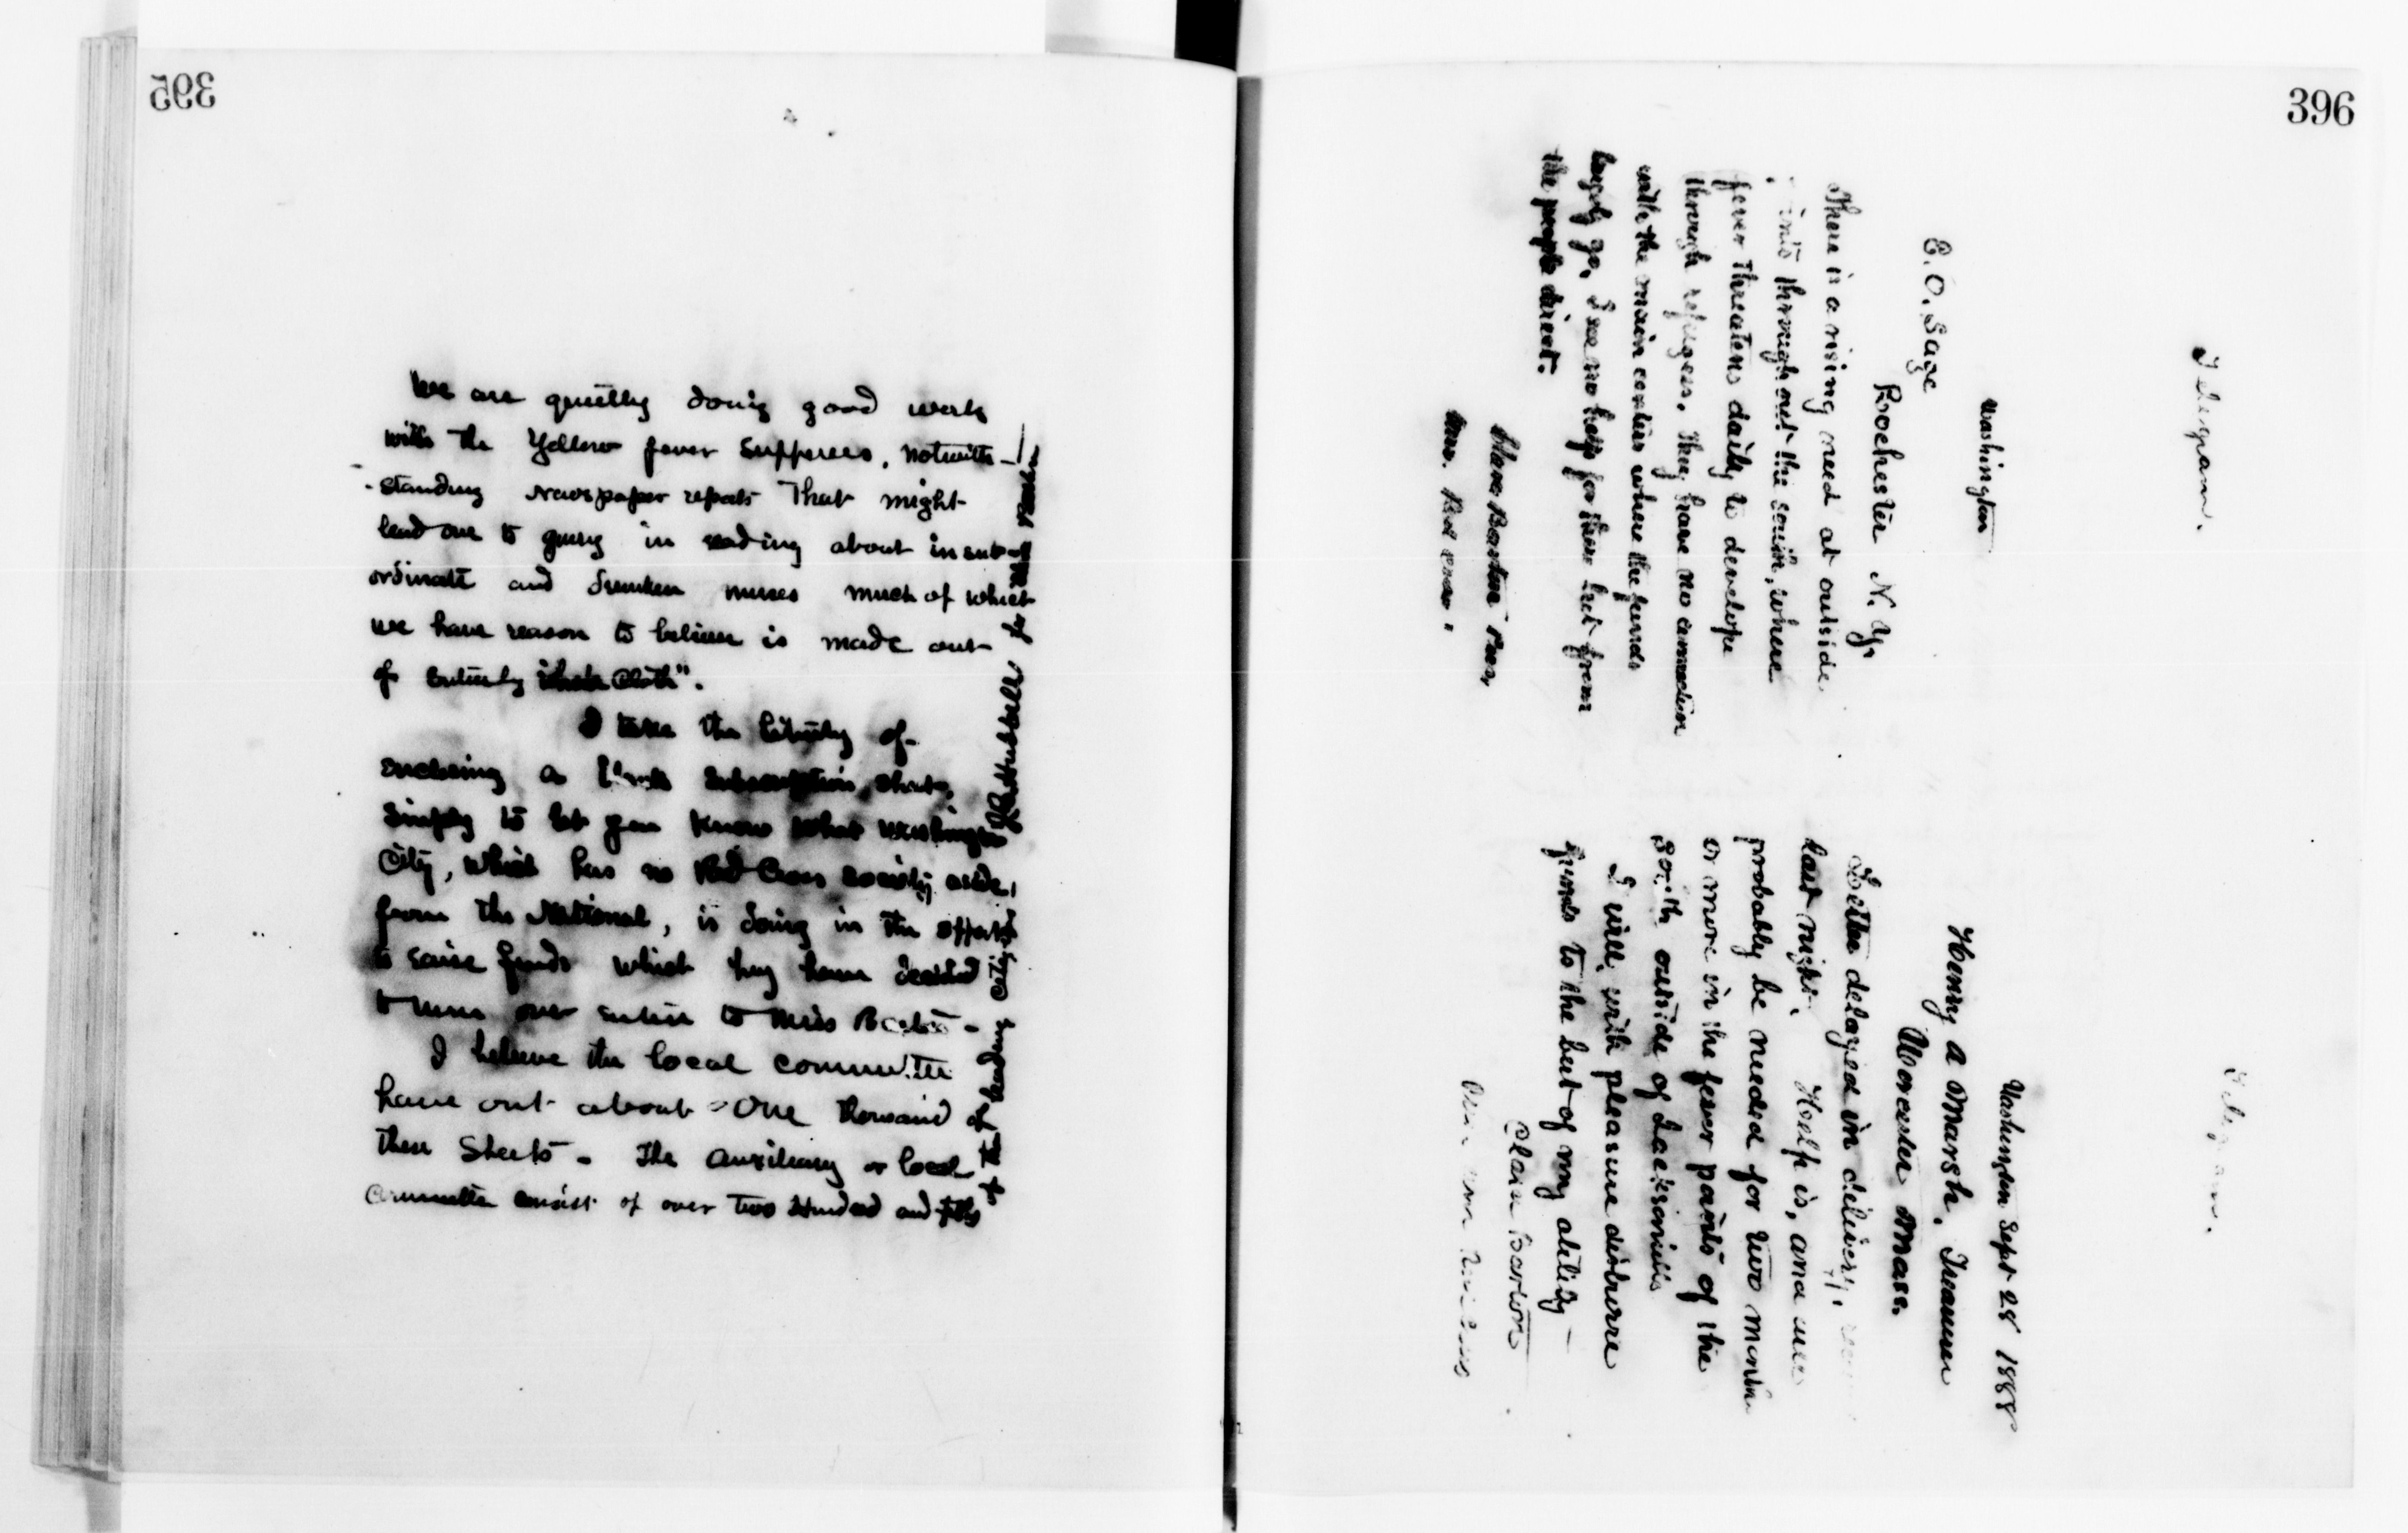 395
We are quietly doing good work
with the Yellow fever Supperers, notwith-
-standing Newspaper repots That might
lead one to in reading about insub-
ordinate and drunken nurses much of which
we have reason to believe is made out
of entirely "whole Cloth".
I take the liberty of
enclosing a blank Subscription sheet,
Simply to let you know what Washington
City, which has no Red Cross society aside,
from the National, is doing in the effort
to raise funds which they have decided
to turn over entire to Miss Barton -
I believe the local committee
have out about One thousand of
these Sheets - The auxiliary or local
Committee consist of over Two Hundred and fifty
of the leading citizens of Washington
396
Telegram.
Washington
E. O. Sage
Rochester N. Y.
There is a rising need at outside
points through out the south, where
fever threatens daily to develope
through refugees. They have no connection
with the main centies where the funds
largely go, I see no help for them but from
the people direct.
Clara Barton Pres,
Am. Red cross.
Telegram.
Washington Sept 28 1888
Henry a Marsh, Treasurer
Worcester Mass.
Letter delayed in delivery,
last night. Help is, and will
probably be needed for two months
or more in the fever parts of the
South outside of Jacksonville
I will, with pleasure disburse
funds to the best of my ability -
Clara Barton